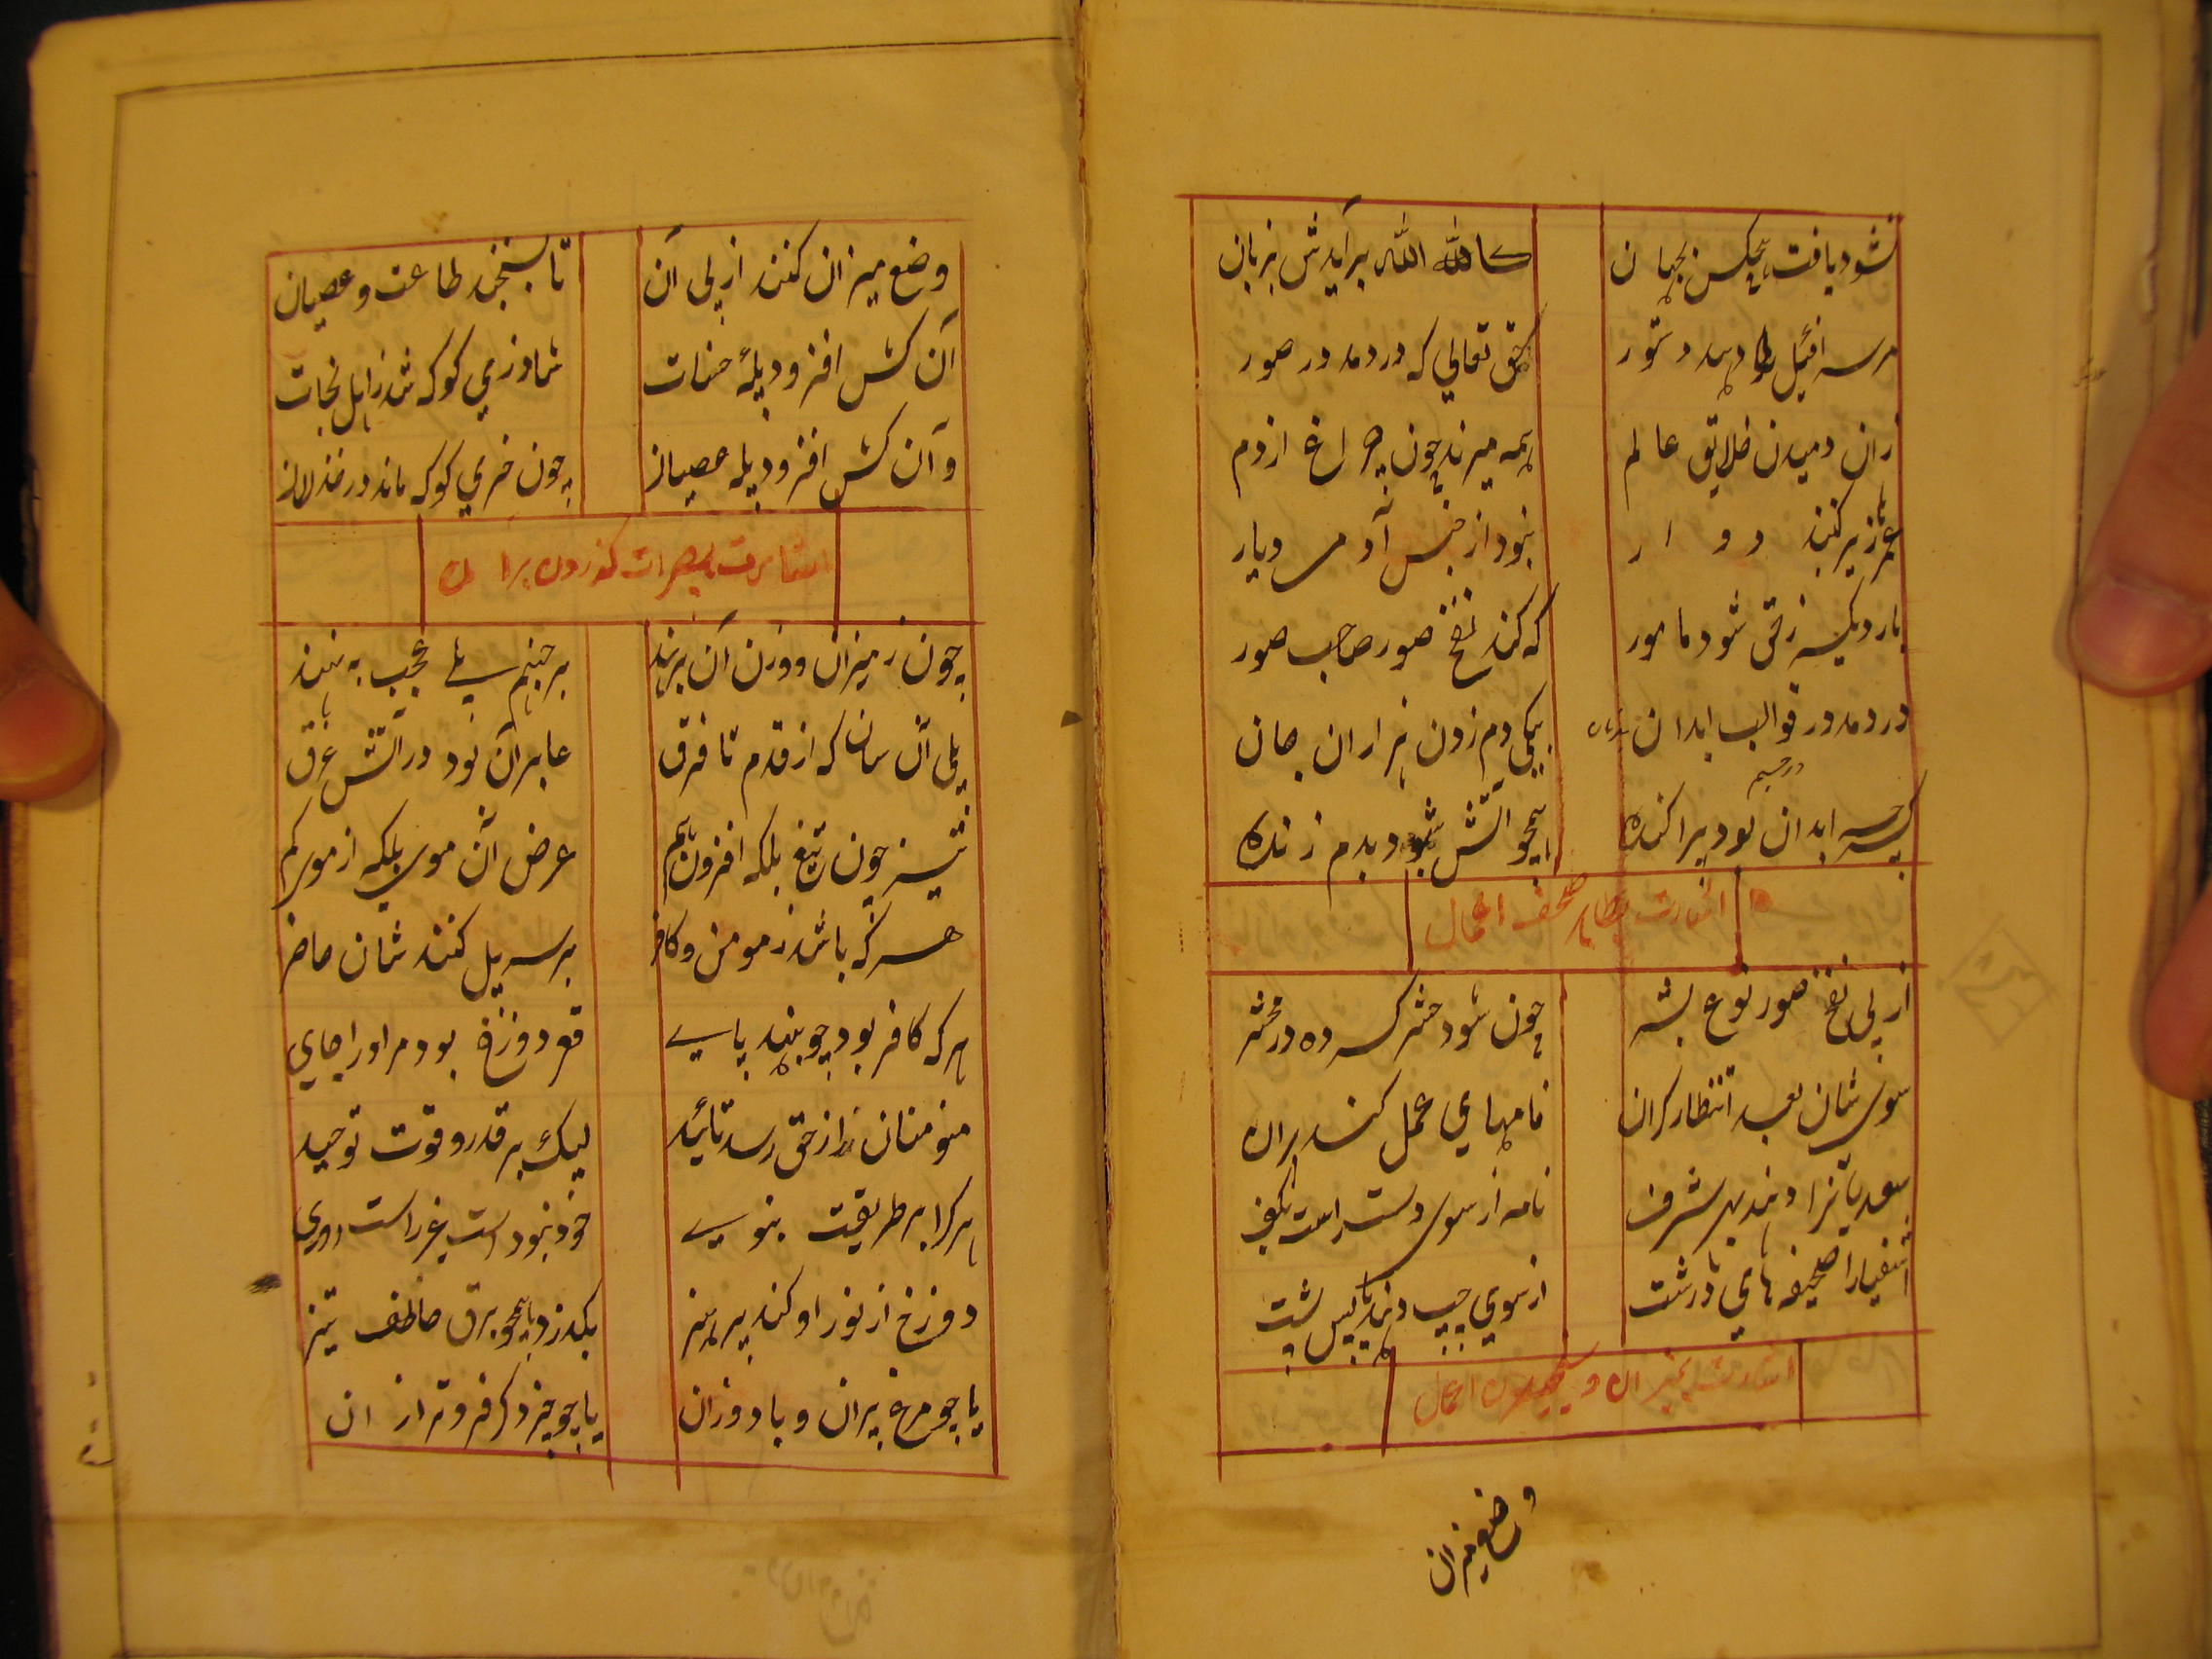 نشود یافت هیچکس بجهان
کالله الله برآیدش بزبان
سرافیل را دهد دستور
حق تعالی که در دمد در صور
زان دمیدن خلایق عالم
همه میرند چون چراغ از دم
عمرها زیر گنبد دوار
نبود از جنس آدمی دیار
بار دیگر ز حق شود مامور
که کند نفخ صور صاحب صور
در دمد در قوالب ابدان
بیکی دم زدن هزاران جان
گرچه ابدان بود پراکنده
همچو آتش شود بدم زنده
اشارت بتطایر صحف اعمال
از پی نفخ صور نوع بشر
چون شود حشر کرده در محشر
سوی شان بعد انتظار کران
نامهای عمل کنند بران
سعدیانرا دهند بهر شرف
نامه از سوی دست راست بکف
اشقیا را صحیفهای درشت
از سوی چپ دهند یا پس پشت
اشارت بمیزان و سنجیدن اعمال
وضع میزان
وضع میزان کنند از پی آن
تا بسنجند طاعت و عصیان
آن کش افزود پلهٔ حسنات
شاد زی گو که شد ز اهل نجات
و آن کش افزود پله عصیان
چون خری گو که ماند در خذلان
اشارت بصراط گذردن بران
چون ز میزان و وزن آن برهند
بر جهنم پلی عجب بنهند
پلی آن سان که از قدم تا فرق
عابر آن بود در آتش غرق
تیز چون تیغ بلکه افزون هم
عرض آن موی بلکه از موی کم
هر که باشد ز مومن و کافر
بر سر پل کنند شان حاضر
هر که کافر بود چو بنهد پای
قعر دوزخ بود مر او را جای
مؤمنان را ز حق رسد تائید
لیک بر قدر و قوت توحید
هر کرا بر طریقت نبوی
خود نبودست غیر راست روی
دوزخ از نور او کند پرهیز
بگذرد همچو برق خاطف تیز
یا چو مرغ پران و باد وزان
یا چو چیزی دگر فروتر از ان